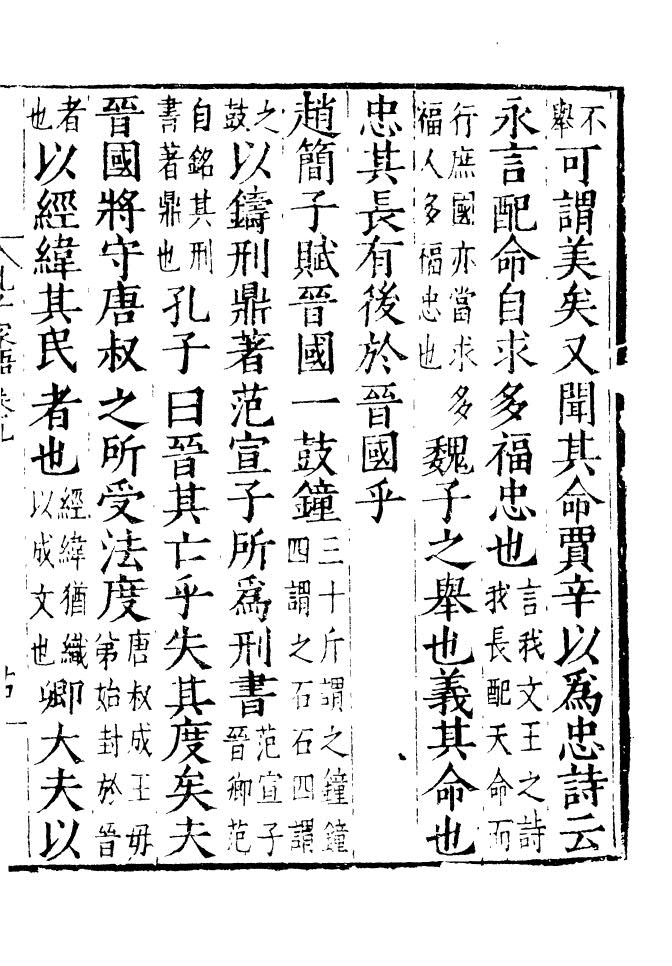 不舉可謂美矣又聞其命賈辛以爲忠詩云
永言配命自求多福忠也言我文王之詩我長配天命而
行庶國亦當求多福人多福忠也魏子之舉也義其命也
忠其長有後於晉國乎
趙簡子賦晉國一鼓鐘三十斤謂之鐘鐘四謂之石石四謂
之鼓以鑄刑鼎著范宣子所爲刑書范宣子晉卿范
自銘其刑書著鼎也孔子曰晉其亡乎失其度矣夫
晉國將守唐叔之所受法度唐叔成王毋苐始封於晉
者也以經緯其民者也經緯猶織以成文也卿大夫以